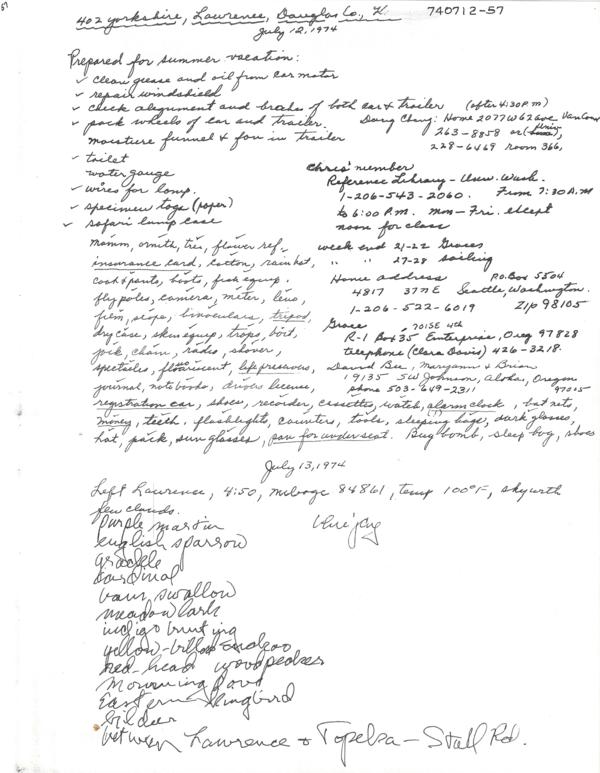 402 Yorkshire, Lawrence, Douglas Co, K 740712-57
July 12, 1974
Prepared for summer vacation:
✓ clean grease and oil from car motor
✓ repair windshield
✓ check alignment and brakes of both car & trailer (after 4:30 P.M)
✓ pack wheels of car and trailer. Doug Chang: Home 2077 W 62 ave VanCouv
moisture funnel & fan in trailer 263-8858 or (Univ.),
✓ toilet 228-6469 room 366,
water gauge
✓ wires for lamp.
✓ specimen tags (paper)
✓ safari lamp case
Chris' number
Reference Library - Univ. Wash.
1-206-543-2060. From 7:30 A.M
to 6:00 P.M. Mon-Fri. except
noon for class
week end 21-22 Graces
" " 27-28 sailing
Home address P.O. Box 5504
4817 37 NE Seattle, Washington.
1-206-522-6019 Zip 98105
Grace 701 SE 4th
R-1 Box 35 Enterprise, Oreg 97828
telephone (Clara Davis) 426-3218.
David Bee, Maryann & Brian
19135 SW Johnson, Aloha, Oregon
phone 503-649-2311 97015
mamm, ornith, ties, flower ref-
insurance card, cotton, rain hat,
coat & pants, boots, fish equip.
fly poles, camera, meter, lens,
film, scope, binoculars, tripod,
dry case, skin equip, traps, boit,
pick, chain, radio, shover,
spectacles, flourescent, life preservers,
journal, notebooks, drivers license,
registration car, shoes, recorder, cassettes, watch, alarm clock, bat nets,
money, teeth, flashlights, counters, tools, sleeping bags, dark glasses,
hat, pack, sun glasses, pan for under seat. Bug bomb, sleep bag, shoes
July 13, 1974
Left Lawrence, 4:50, mileage 84861, temp 100°F, sky with
few clouds.
purple martin blue jay
english sparrow
grackle
cardinal
barn swallow
meadowlark
indigo bunting
yellow-billed cuckoo
red-head woodpecker
Mourning Dove
Eastern Kingbird
killdeer
between Lawrence & Topeka - Stull Rd.